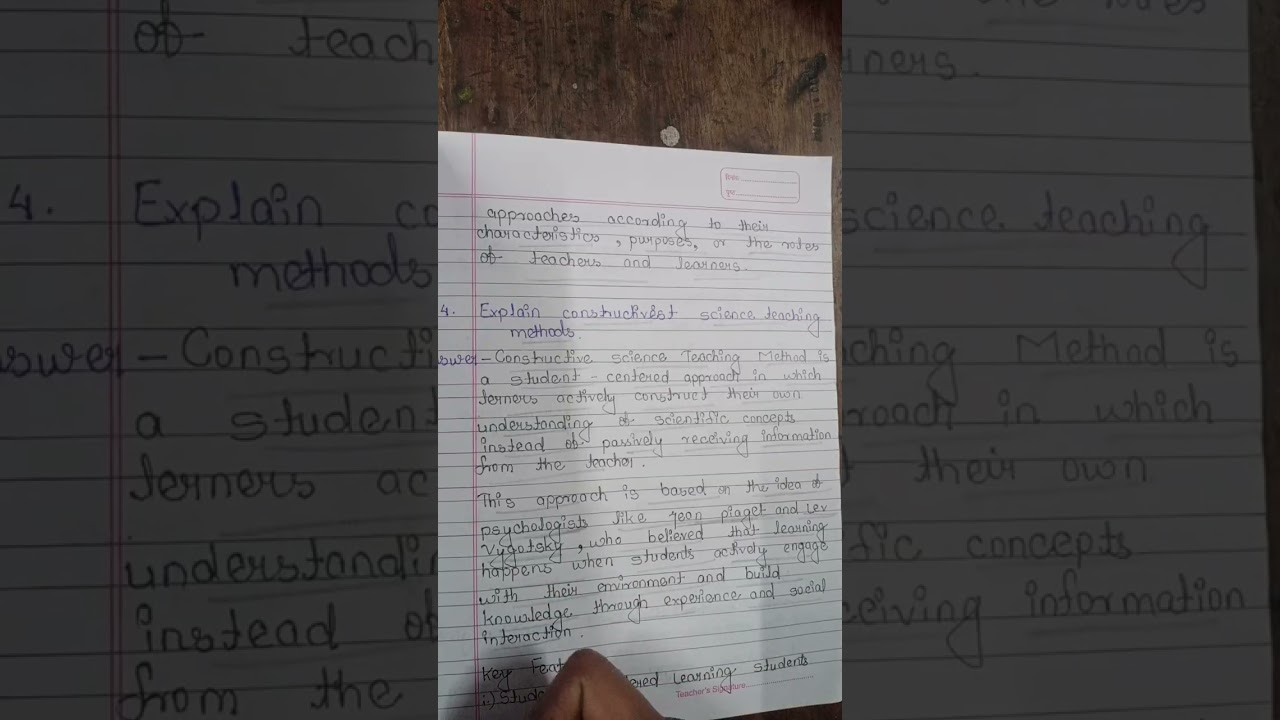 approaches according to their
characteristics, purposes, or the roles
of teachers and learners.
4. Explain constructivist science teaching
methods.
Answer - Constructive science Teaching Method is
a student - centered approach in which
lerners actively construct their own
understanding of scientific concepts
instead of passively receiving information
from the teacher.
This approach is based on the idea of
psychologists like Jean piaget and Lev
Vygotsky, who believed that learning
happens when students actively engage
with their environment and build
knowledge through experience and social
interaction.
Key
i.) Learning students
Teacher's Signature